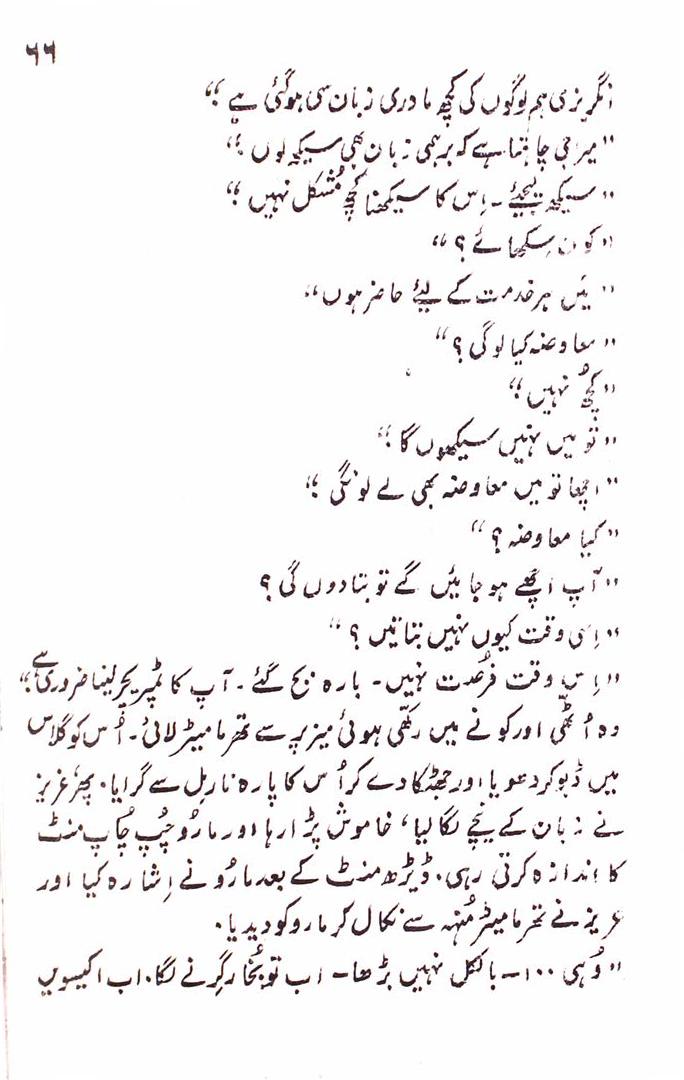 ۶۶
انگریزی ہم لوگوں کی کچھ مادری زبان سی ہوگئی ہے"
"میرا جی چاہتا ہے کہ برمی زبان بھی سیکھ لوں"
"سیکھ لیجئے ۔ اِس کا سیکھنا کچھ مُشکل نہیں"
"کون سکھائے ؟"
"میں ہر خدمت کے لیئے حاضر ہوں"
"معاوضہ کیا لوگی ؟"
"کچُھ نہیں"
"تو میں نہیں سیکھوں گا"
"اچھا تو میں معاوضہ بھی لے لونگی"
"کیا معاوضہ ؟"
"آپ اچھے ہو جائیں گے تو بتا دوں گی ؟
"اِسی وقت کیوں نہیں بتاتیں ؟"
"اِس وقت فُرصت نہیں۔ بارہ بج گئے ۔ آپ کا ٹمپریچر لینا ضروری ہے"
وہ اُٹھّی اور کونے میں رکھّی ہوئی میز پر سے تھرمامیٹر لائی ۔ اُس کو گلاس
میں ڈبو کر دھویا اور جھٹکا دے کر اُس کا پارہ نارمل سے گرایا۔ پھر عزیز
نے زبان کے نیچے لگا لیا، خاموش پڑا رہا اور مارُو چُپ چُاپ منٹ
کا اندازہ کرتی رہی۔ ڈیڑھ منٹ کے بعد مارُو نے اِشارہ کیا اور
عزیز نے تھرمامیٹر مُنہہ سے نکال کر مارو کو دیدیا۔
"وُہی ۱۰۰۔ بالکل نہیں بڑھا۔ اب تو بُخار گِرنے لگا۔ اب اکیسویں